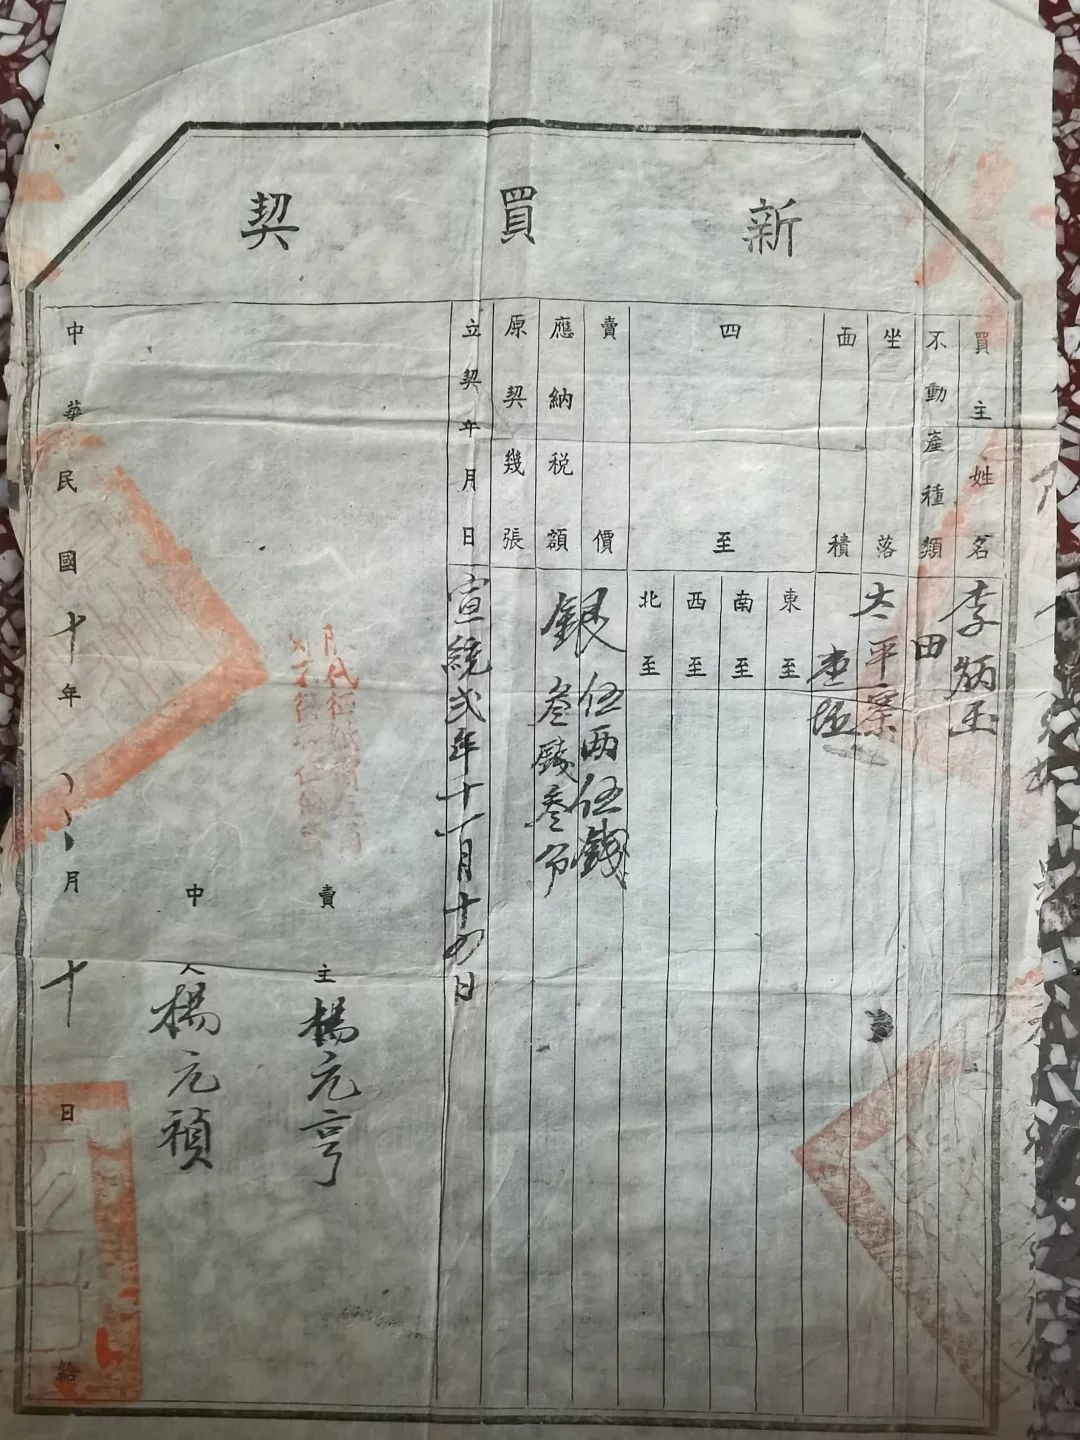 新買契
買主姓名 李炳玉
不動產種類 田
坐落 太平寨
面積 壹坵
四至
東至
南至
西至
北至
賣價 銀伍兩伍錢
應納税額 叁錢叁分
原契幾張
立契年月日 宣統弍年十一月十四日
賣主 楊元亨
中人 楊元禎
中華民國十年八月十日給